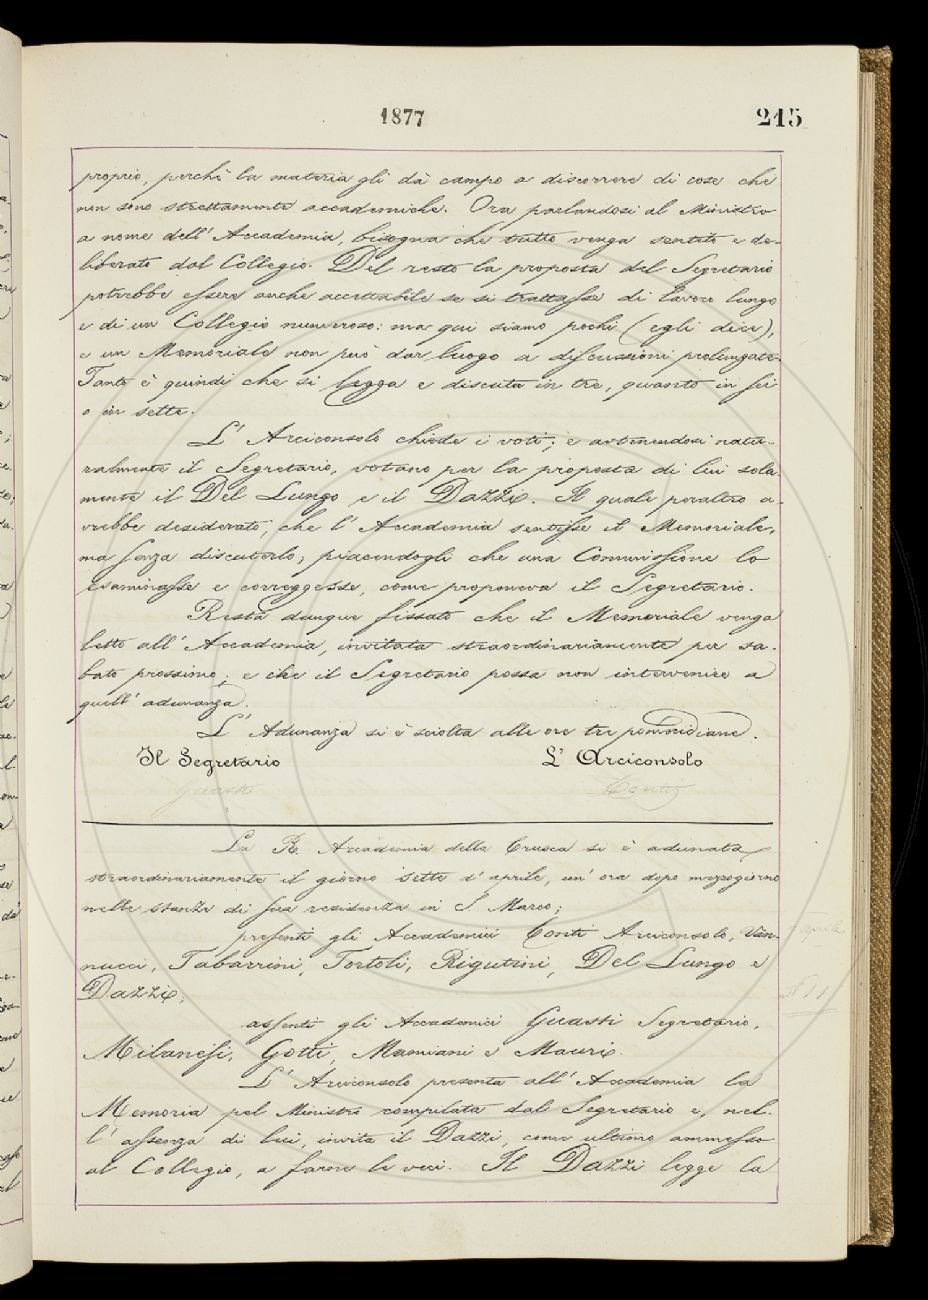 1877
215
proprio, perchè la materia gli dà campo a discorrere di cose che
non sono strettamente accademiche. Ora parlandosi al Ministro
a nome dell' Accademia, bisogna che tutto venga sentito e de-
liberato dal Collegio. Del resto la proposta del Segretario
potrebbe essere anche accettabile se si trattasse di lavoro lungo
e di un Collegio numeroso: ma qui siamo pochi (egli dice),
e un Memoriale non può dar luogo a discussioni prolungate.
Tanto è quindi che si legga e discuta in tre, quanto in sei
o in sette.
L' Arciconsolo chiede i voti; e astenendosi natu-
ralmente il Segretario, votano per la proposta di lui sola-
mente il Del Lungo e il Dazzi. Il quale peraltro a-
vrebbe desiderato, che l' Accademia sentisse il Memoriale,
ma senza discuterlo; piacendogli che una Commissione lo
esaminasse e correggesse, come proponeva il Segretario.
Resta dunque fissato che il Memoriale venga
letto all' Accademia, invitata straordinariamente per sa-
bato prossimo; e che il Segretario possa non intervenire a
quell' adunanza.
L' Adunanza si è sciolta alle ore tre pomeridiane.
Il Segretario L' Arciconsolo
Guasti Conti
La R. Accademia della Crusca si è adunata
straordinariamente il giorno sette d' aprile, un' ora dopo mezzogiorno
nelle stanze di sua residenza in S. Marco;
presenti gli Accademici Conti Arciconsolo, Van-
nucci, Tabarrini, Tortoli, Rigutini, Del Lungo e
Dazzi;
assenti gli Accademici Guasti Segretario,
Milanesi, Gotti, Mamiani e Mauri.
L' Arciconsolo presenta all' Accademia la
Memoria pel Ministro compilata dal Segretario e, nel-
l' assenza di lui, invita il Dazzi, come ultimo ammesso
al Collegio, a farne le veci. Il Dazzi legge la
aprile